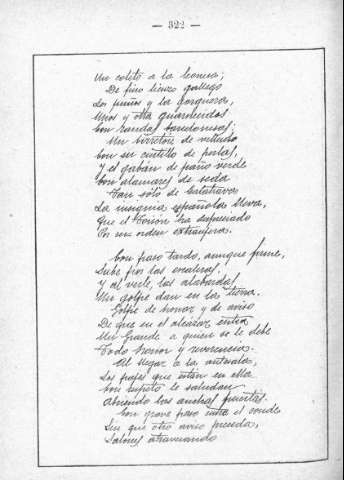 — 322 —
Un coleto a la leonesa,
De fino lienzo gallego
Los puños y la gorguera,
Unos y otra guarnecidos
Con randas barcelonesas;
Un birretón de velludo
Con su cintillo de perlas,
Y el gabán de paño verde
Con alamares de seda.
Tan sólo de Calatrava
La insignia española lleva,
Que el Toisón ha despreciado
Por ser orden extranjera.
Con paso tardo, aunque firme,
Sube por las escaleras,
Y al verle, las alabardas
Un golpe dan en la tierra.
Golpe de honor y de aviso
De que en el alcázar entra
Un Grande a quien se le debe
Todo honor y reverencia.
Al llegar a la antesala,
Los pajes que están en ella
Con respeto le saludan
Abriendo las anchas puertas.
Con grave paso entra el conde,
Sin que otro aviso preceda,
Salones atravesando